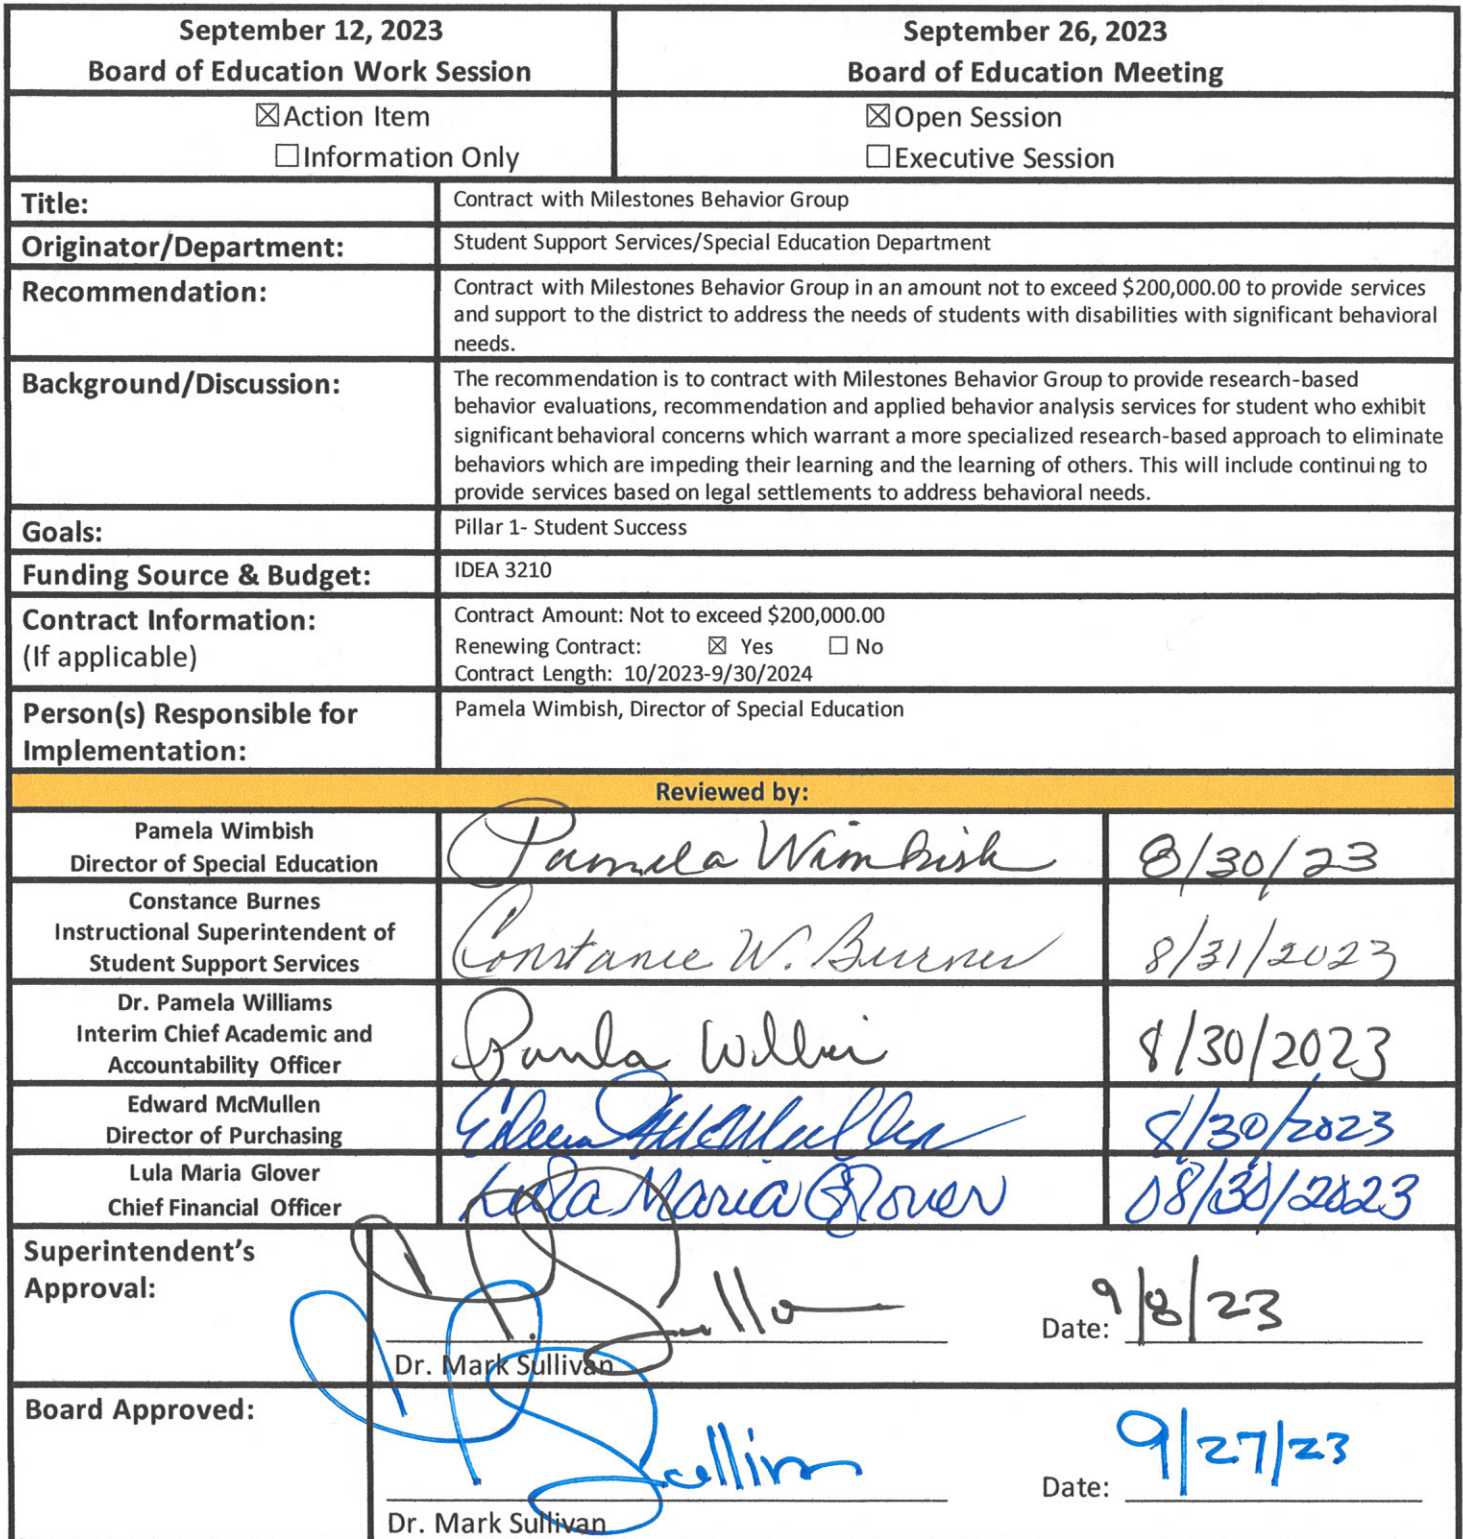 September 12, 2023
Board of Education Work Session
September 26, 2023
Board of Education Meeting
☒Action Item
☐Information Only
☒Open Session
☐Executive Session
Title:
Contract with Milestones Behavior Group
Originator/Department:
Student Support Services/Special Education Department
Recommendation:
Contract with Milestones Behavior Group in an amount not to exceed $200,000.00 to provide services
and support to the district to address the needs of students with disabilities with significant behavioral
needs.
Background/Discussion:
The recommendation is to contract with Milestones Behavior Group to provide research-based
behavior evaluations, recommendation and applied behavior analysis services for student who exhibit
significant behavioral concerns which warrant a more specialized research-based approach to eliminate
behaviors which are impeding their learning and the learning of others. This will include continuing to
provide services based on legal settlements to address behavioral needs.
Goals:
Pillar 1- Student Success
Funding Source & Budget:
IDEA 3210
Contract Information:
(If applicable)
Contract Amount: Not to exceed $200,000.00
Renewing Contract: ☒ Yes ☐ No
Contract Length: 10/2023-9/30/2024
Person(s) Responsible for
Implementation:
Pamela Wimbish, Director of Special Education
Reviewed by:
Pamela Wimbish
Director of Special Education
Pamela Wimbish
8/30/23
Constance Burnes
Instructional Superintendent of
Student Support Services
Constance W. Burnes
8/31/2023
Dr. Pamela Williams
Interim Chief Academic and
Accountability Officer
8/30/2023
Edward McMullen
Director of Purchasing
McMullen
8/30/2023
Lula Maria Glover
Chief Financial Officer
Lula Maria Glover
08/30/2023
Superintendent's
Approval:
Date: 9/8/23
Dr. Mark Sullivan
Board Approved:
Sullivan
Date: 9/27/23
Dr. Mark Sullivan